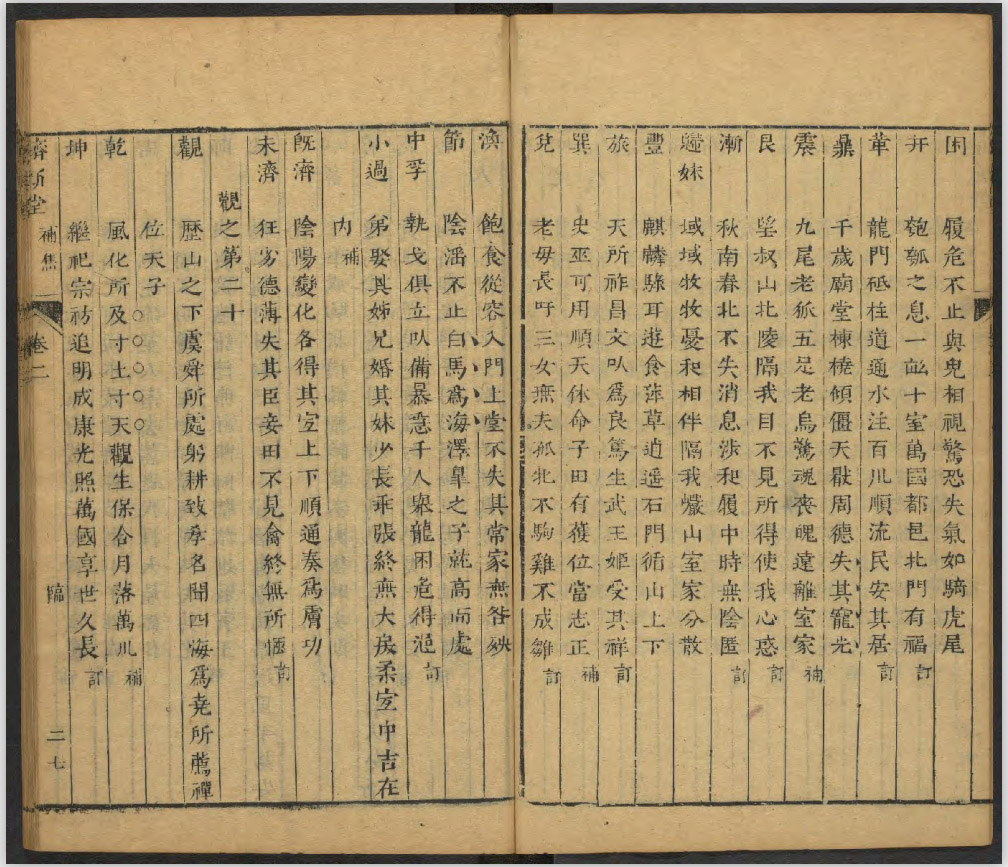 困 履危不止與鬼相視驚恐失氣如騎虎尾
井 匏瓠之息一畝十室萬國都邑北門有福 訂
革 龍門砥柱道通水注百川順流民安其居 訂
鼎 千歲廟堂棟橈傾僵天厭周德失其寵光
震 九尾老狐五足老烏驚魂喪魄遠離室家 補
艮 望叔山北陵隔我目不見所得使我心惑 訂
漸 秋南春北不失消息涉和履中時無陰匿 訂
歸妹 域域牧牧憂和相伴隔我巖山室家分散
豐 麒麟騄耳遊食萍草逍遥石門循山上下
旅 天所祚昌文以爲良篤生武王姬受其祥 訂
巽 史巫可用順天休命子田有獲位當志正 補
兌 老母長吁三女無夫孤牝不駒雞不成雛 訂
渙 飽食從容入門上堂不失其常家無咎殃
節 陰滛不止白馬爲海澤臯之子就高而處
中孚 執戈俱立以備暴急千人舉龍困危得池 訂
小過 弟娶其姊兄婚其妹少長乖張終無大戾柔宜中吉在
内 補
旣濟 陰陽變化各得其宜上下順通奏爲膚功
未濟 狂 德薄失其臣妾田不見禽終無所 訂
觀之第二十
觀 歷山之下虞舜所處躬耕致孝名聞四海爲堯所薦禪
位天子
乾 風化所及寸土寸天觀生保合月落萬川 補
坤 繼祀宗祊追明成康光照萬國享世久長 訂
補焦 卷二 臨 二七